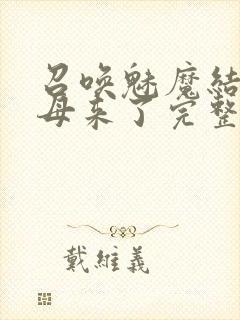 召唤魅魔结
母来了完整
戴維義